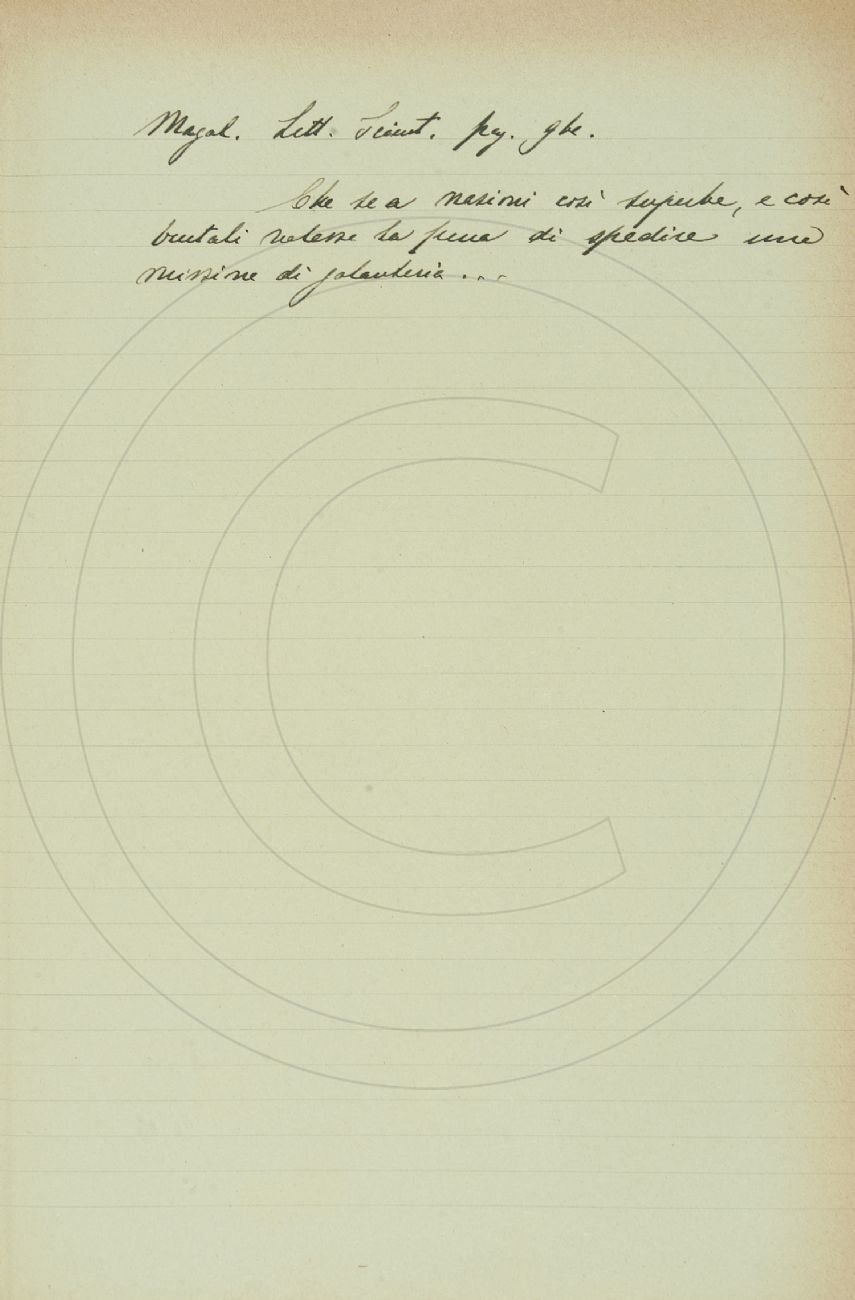 Magal. Lett. Scient. pag.
Che se a nazioni così superbe, e così
brutali valesse la pena di spedire una
missione di galanteria...